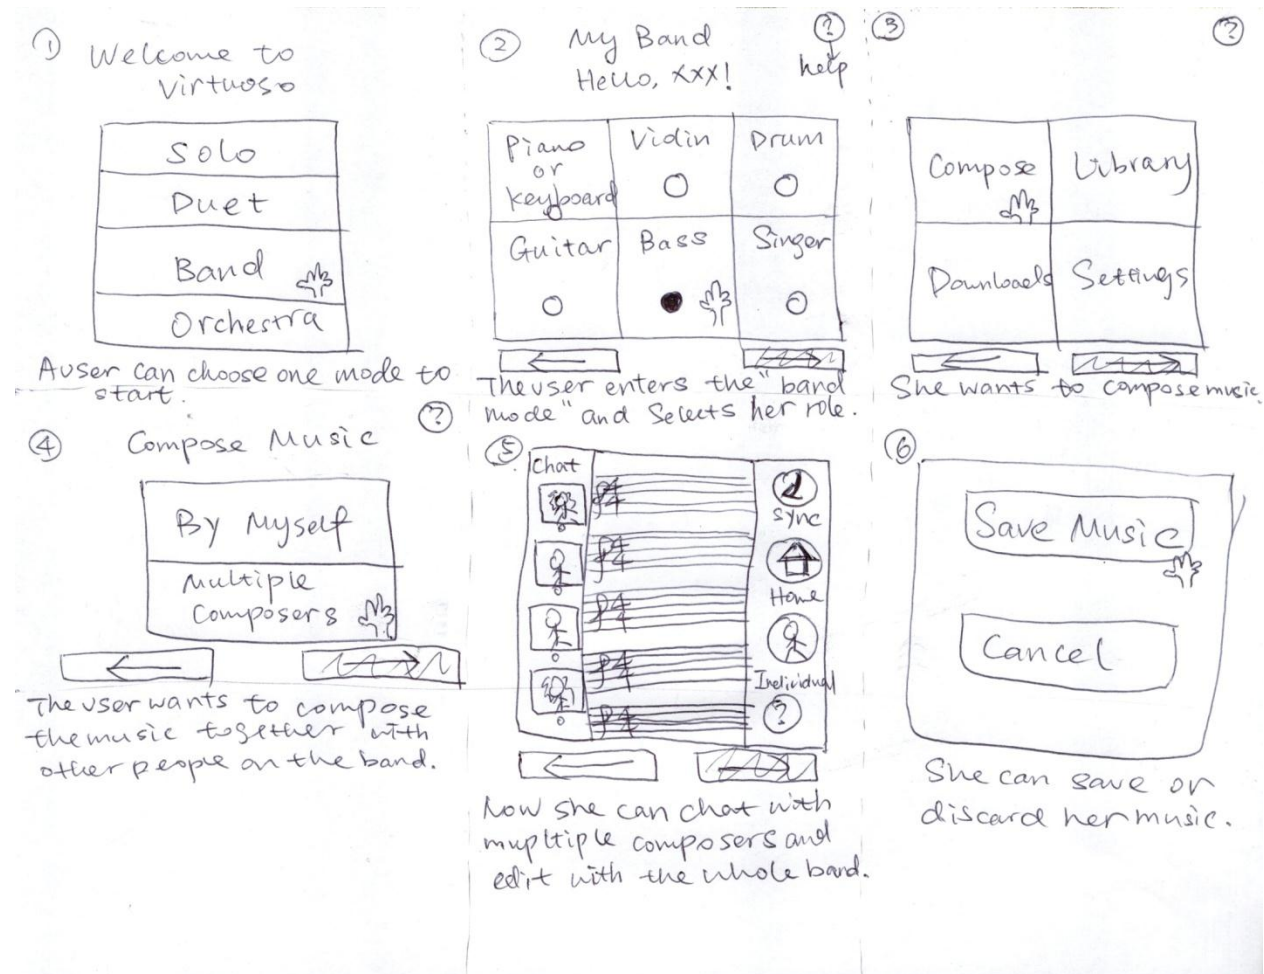 ①
Welcome to
Virtuoso
Solo
Duet
Band
Orchestra
A user can choose one mode to
start.
②
My Band
Hello, XXX!
?
help
Piano
or
keyboard
Violin
Drum
Guitar
Bass
Singer
The user enters the "band
mode" and selects her role.
③
?
Compose
Library
Downloads
Settings
She wants to compose music.
④
Compose Music
?
By Myself
Multiple
Composers
The user wants to compose
the music together with
other people on the band.
⑤
Chat
Sync
Home
Individual
?
Now she can chat with
mupltiple composers and
edit with the whole band.
⑥
Save Music
Cancel
She can save or
discard her music.